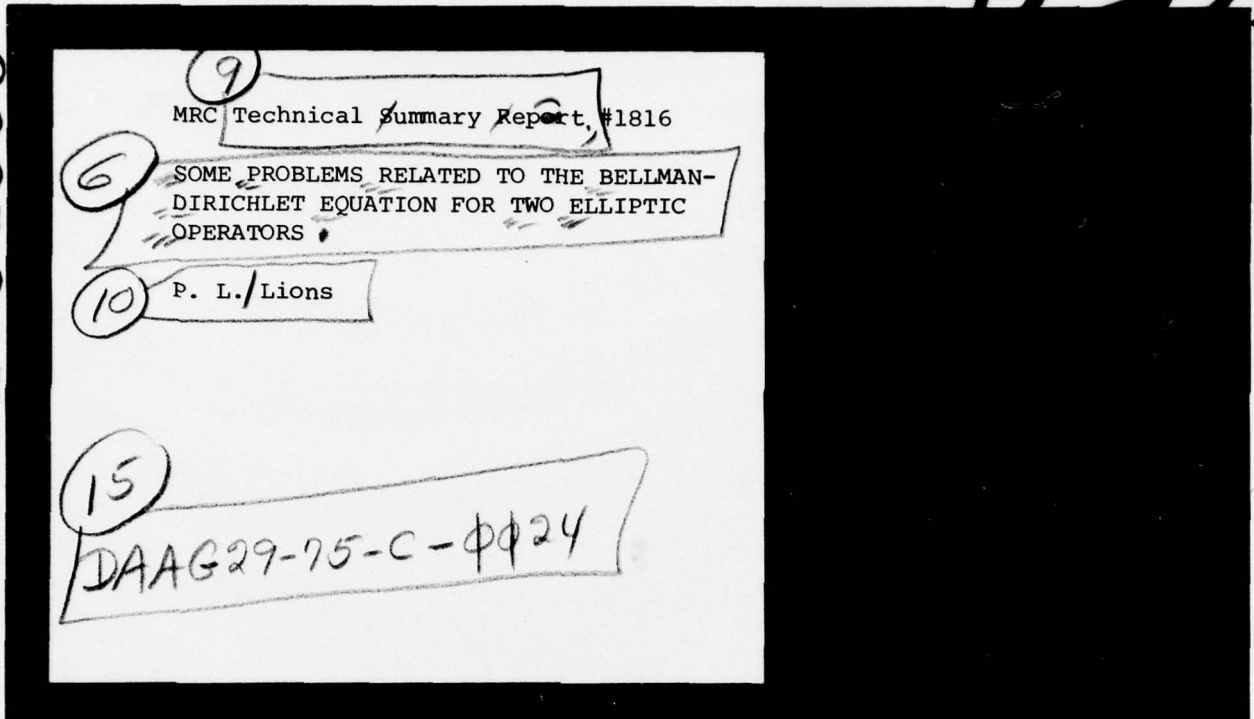 9
MRC Technical Summary Report, #1816
6
SOME PROBLEMS RELATED TO THE BELLMAN-
DIRICHLET EQUATION FOR TWO ELLIPTIC
OPERATORS
10
P. L. Lions
15
DAAG29-75-C-0024